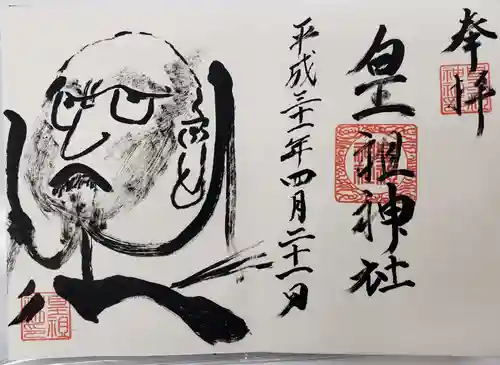 奉拝
皇祖神社
平成三十一年四月二十一日